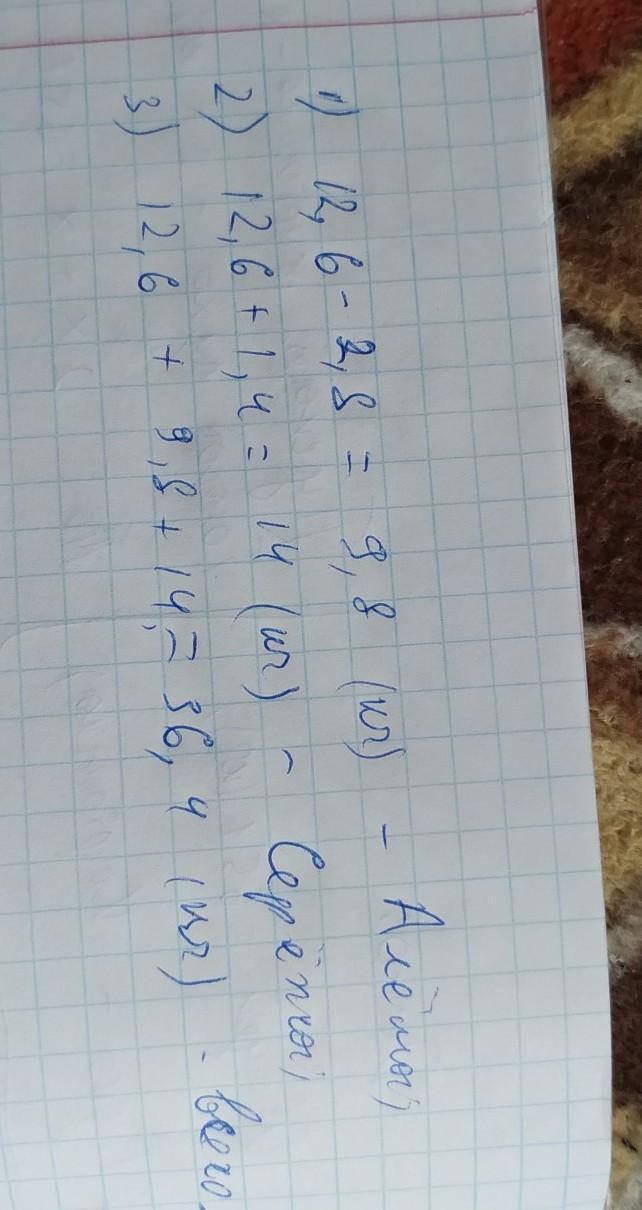 1) 12,6 - 2,8 = 9,8 (кг) - Алёша;
2) 12,6 + 1,4 = 14 (кг) - Серёжа;
3) 12,6 + 9,8 + 14 = 36,4 (кг) - всего.